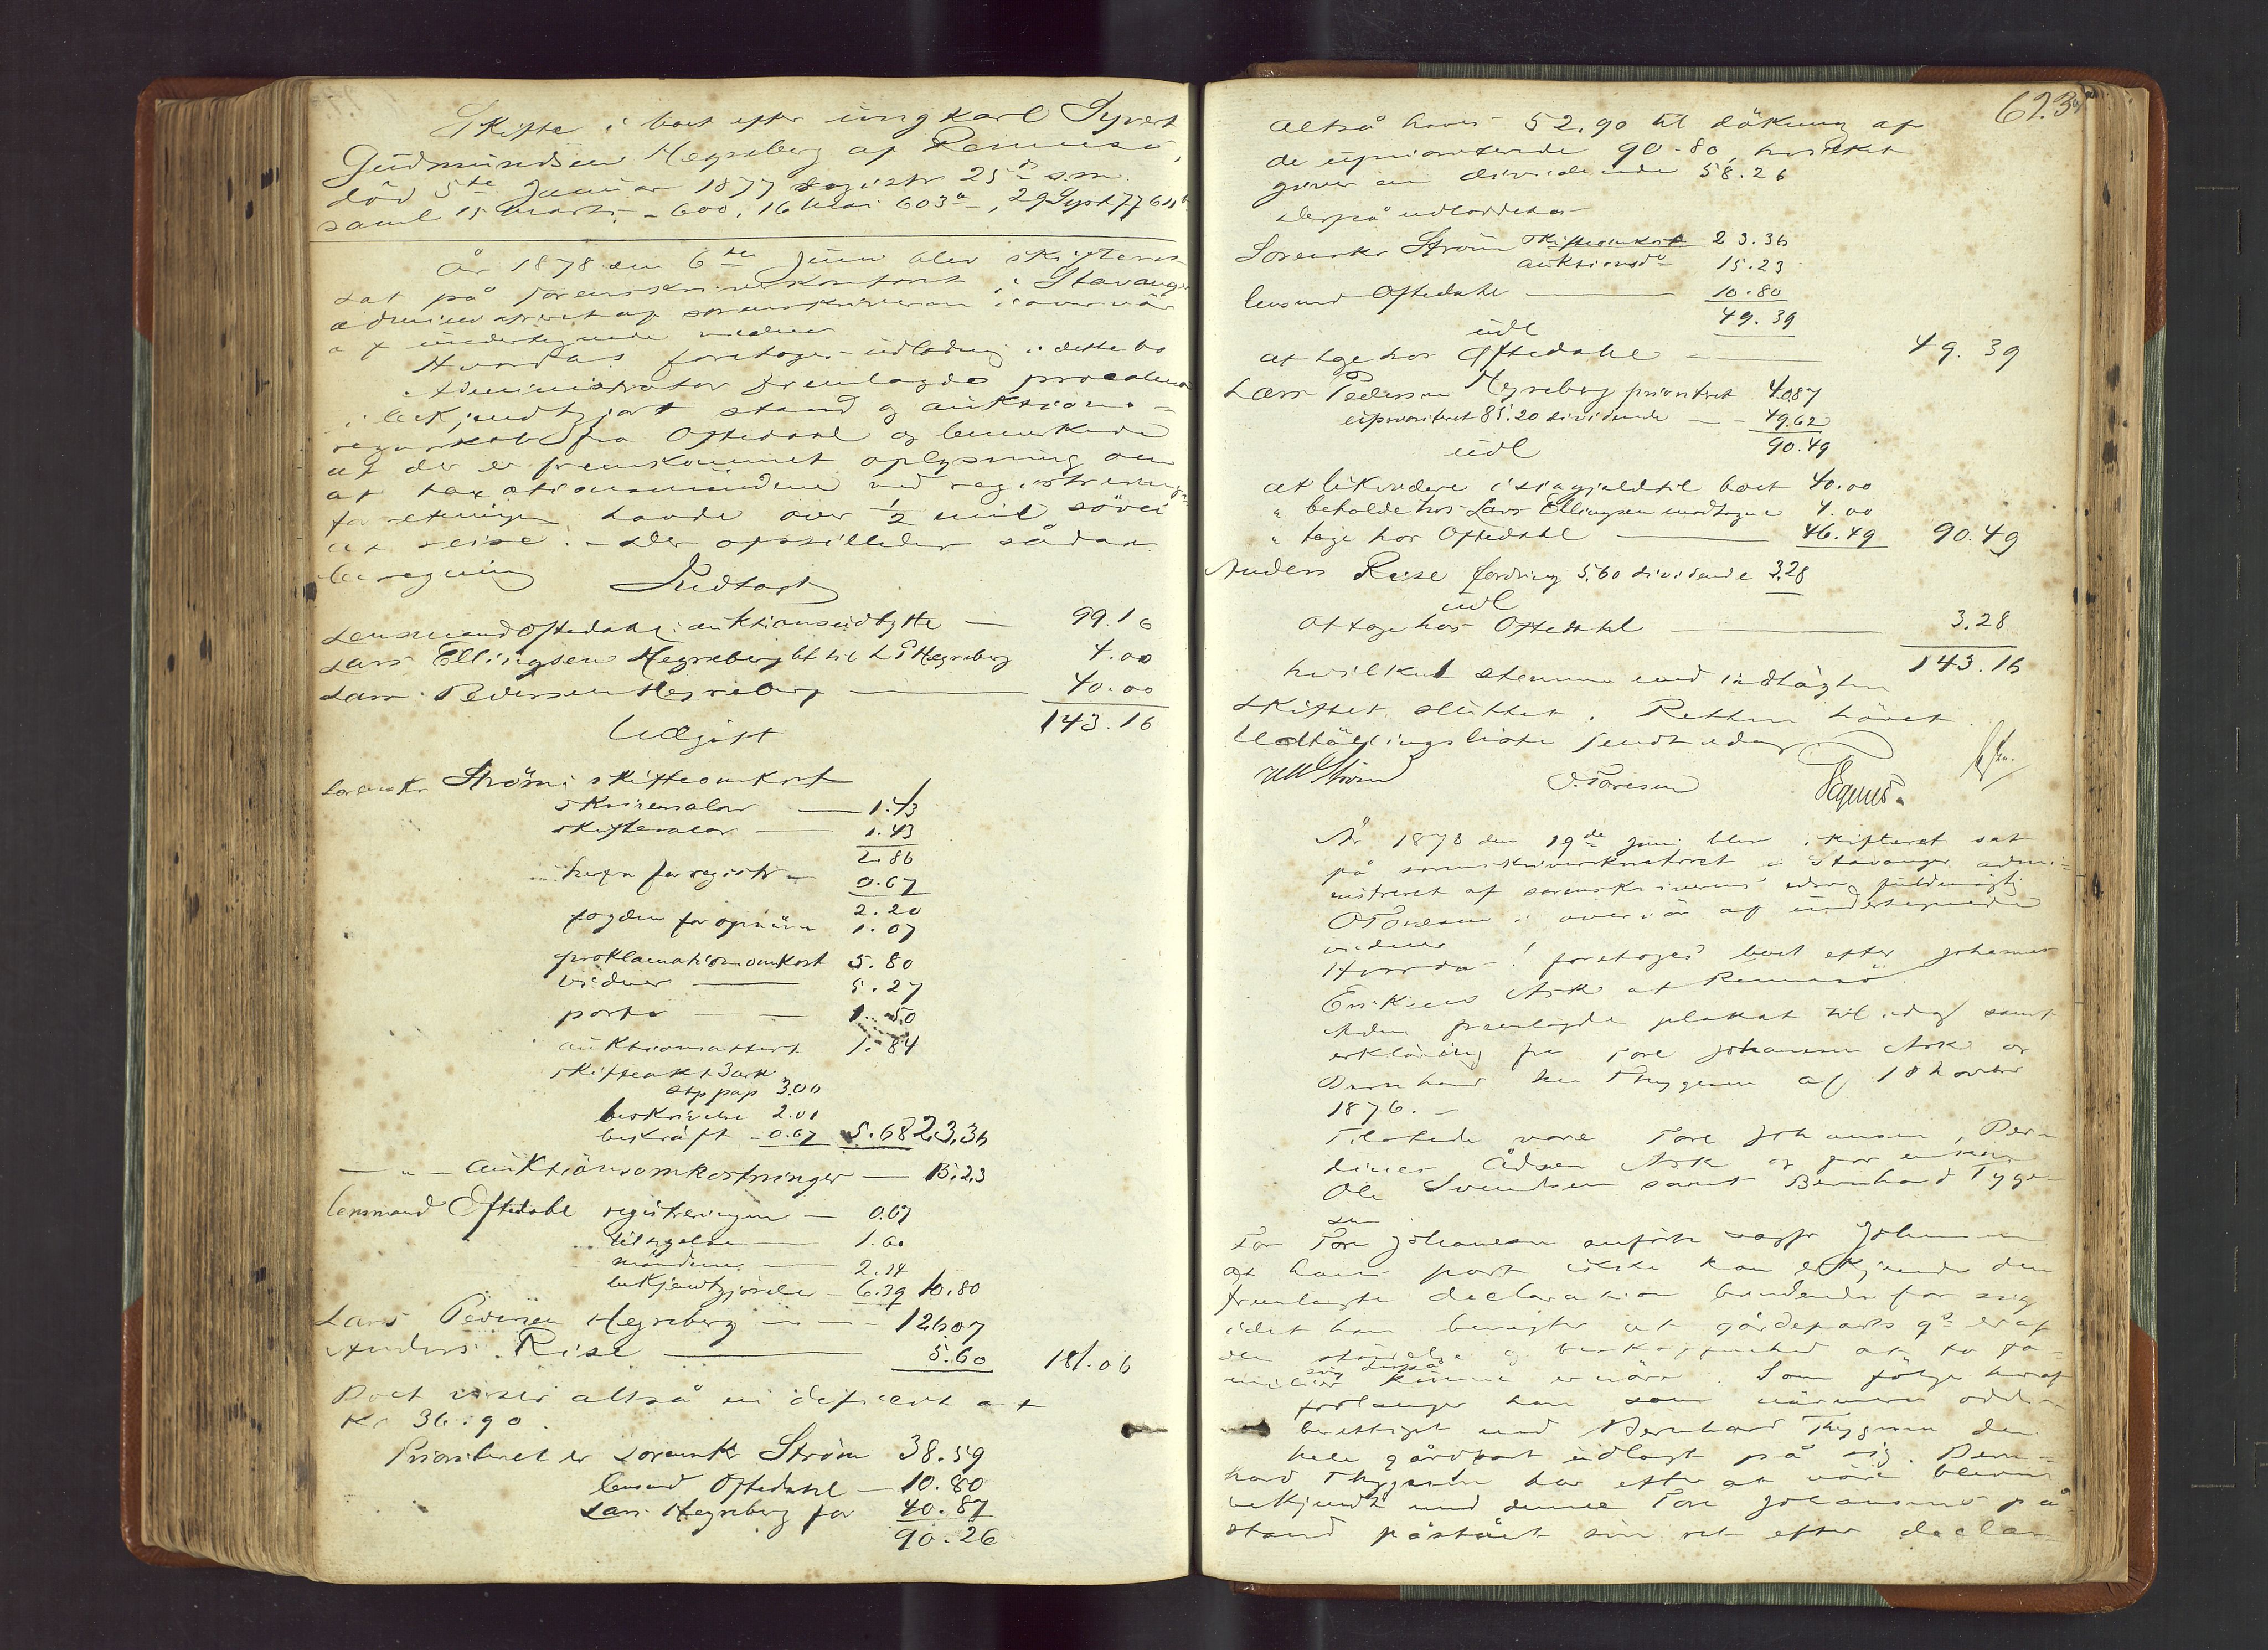 Skifte i boet efter ungkarl Syvert
Gudmundsen Hegreberg af Rennesö,
död 5te Januar 1877 registr 25de s.m.
saml 15 marts - 600, 16 Mai 603a, 29 Sept 77 611b
År 1878 den 6te Juni blev skifteret
sat på sorenskriverkontoret i Stavanger
administreret af sorenskriveren i overvär
af undertegnede vidner
Hvorda! foretoges udlodning i dette bo
Administrator fremlagde proclama
i bekjendtgjort stand og auktions-
regnskab fra Oftedahl og bemerkede
at der er fremkommet oplysning om
at taxationsmändene ved registrerings
forretningen havde over 1/2 mil sövei
at reise. - Der opstilledes sådan
beregning
Indtægt
Lensmand Oftedahl: auktionsudbytte — 99.16
Lars Ellingsen Hegreberg bet til L P Hegreberg 4.00
Lars Pedersen Hegreberg — 40.00
143.16
Udgift
Sorenskr Ströms skifteomkost
skriversalær — 1.43
skiftesalær — 1.43
2.86
herfra for registr — 0.67
2.20
fogden for opnävn 1.07
proklamationsomkost 5.80
vidner — 5.27
porto — 1.50
auktionsattest 1.84
skifteakt 3 ark
stp pap 3.00
beskrivelse 2.01
bekräft - 0.67 5.68 23.36
— " — auktionsomkostninger — 15.23
lensmand Oftedahl registreringen — 0.67
tilsigelse — 1.60
mändene — 2.14
bekjendtgjörelse — 6.39 10.80
Lars Pedersen Hegreberg — 126.07
Anders Reise — 5.60 181.06
Boet viser altså en deficit af
Kr 36.90.
Prioriteret er sorenskr Ström 38.59
lensmd Oftedahl — 10.80
Lars Hegreberg for 40.87
90.26
623a
altså haves 52.90 til däkning af
de uprioriterede 90.80, hvilket
giver en dividende 58.26
Derpå udloddedes
Sorenskr Ström skifteomkost 23.36
auktionsdo 15.23
lensmd Oftedahl — 10.80
49.39
udl
at tage hos Oftedahl — 49.39
Lars Pedersen Hegreberg prioriteret 40.87
uprioriteret 85.20 dividende — 49.62
90.49
udl
at likvidere i sin gjeld til boet 40.00
" beholde hos Lars Ellingsen modtagne 4.00
" tage hos Oftedahl — 46.49 90.49
Anders Reise fordring 5.60 dividende 3.28
udl
at tage hos Oftedahl — 3.28
143.16
hvilket stemmer med indtägten
Skiftet sluttet. Retten hävet.
Uedtällingsliste sendt idag
Ström O. Toresen
År 1878 den 19de Juni blev skifteret sat
på sorenskriverkontoret i Stavanger admi-
nistreret af sorenskriverens edsvg fuldmägtig
O Toresen i overvär af undertegnede
vidner
Hvorda! foretoges boet efter Johannes
Eriksen Ask af Rennesö.
Adm fremlagde plakat til idag samt
erkläring fra Tore Johannesen Ask og
Bernhard Thygesen af 18 novbr
1876. -
Tilstede vare Tore Johannesen,
Ådsen Ask og for enken
Ole Svendsen samt Bernhard Tyge-
sen
For Tore Johannesen anförte sagfr Johnsen
at hans part ikke kan erkjende den
fremlagte declaration bindende for sig
idet han benegter at gårdeparts er af
den störrelse og beskaffenhed at to fa-
milier kunne ernäre sig derpå. Som fölge heraf
forlanger han som närmere odels-
berettiget end Bernhard Thygesen den
hele gårdpart udlagt på sig. Bern-
hard Thygesen har efter at väre bleven
bekjendt med denne Tore Johannesens på-
stand påstået sin ret efter declara-